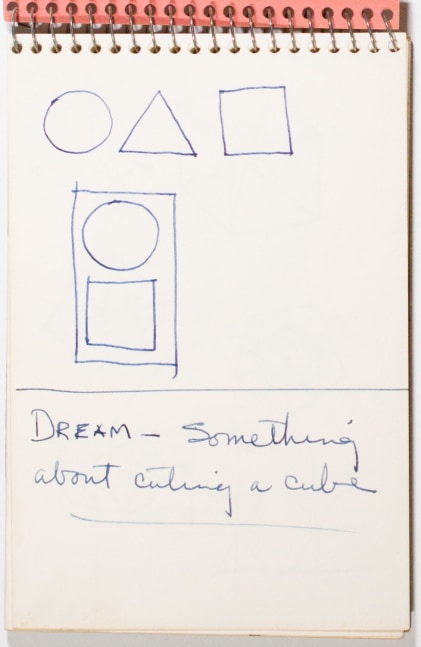 DREAM – Something
about cutting a cube